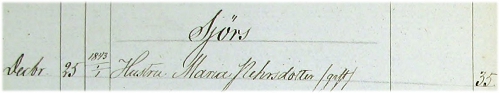 Sjörs
Decbr. 25 1843 1/7 Hustru Maria Pehrsdotter (gift) 35.